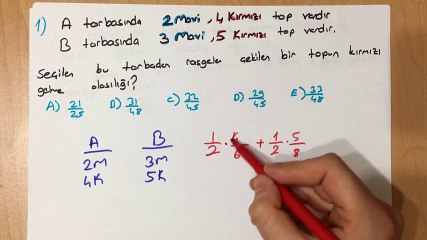 1) A torbasında 2 mavi, 4 kırmızı top vardır
B torbasında 3 mavi, 5 kırmızı top vardır.
Seçilen bu torbadan rasgele çekilen bir topun kırmızı
gelme olasılığı?
A) 21/25 B) 31/48 C) 32/45 D) 29/45 E) 33/48
A B
2M 3M
4K 5K
1/2 · /6 + 1/2 · 5/8